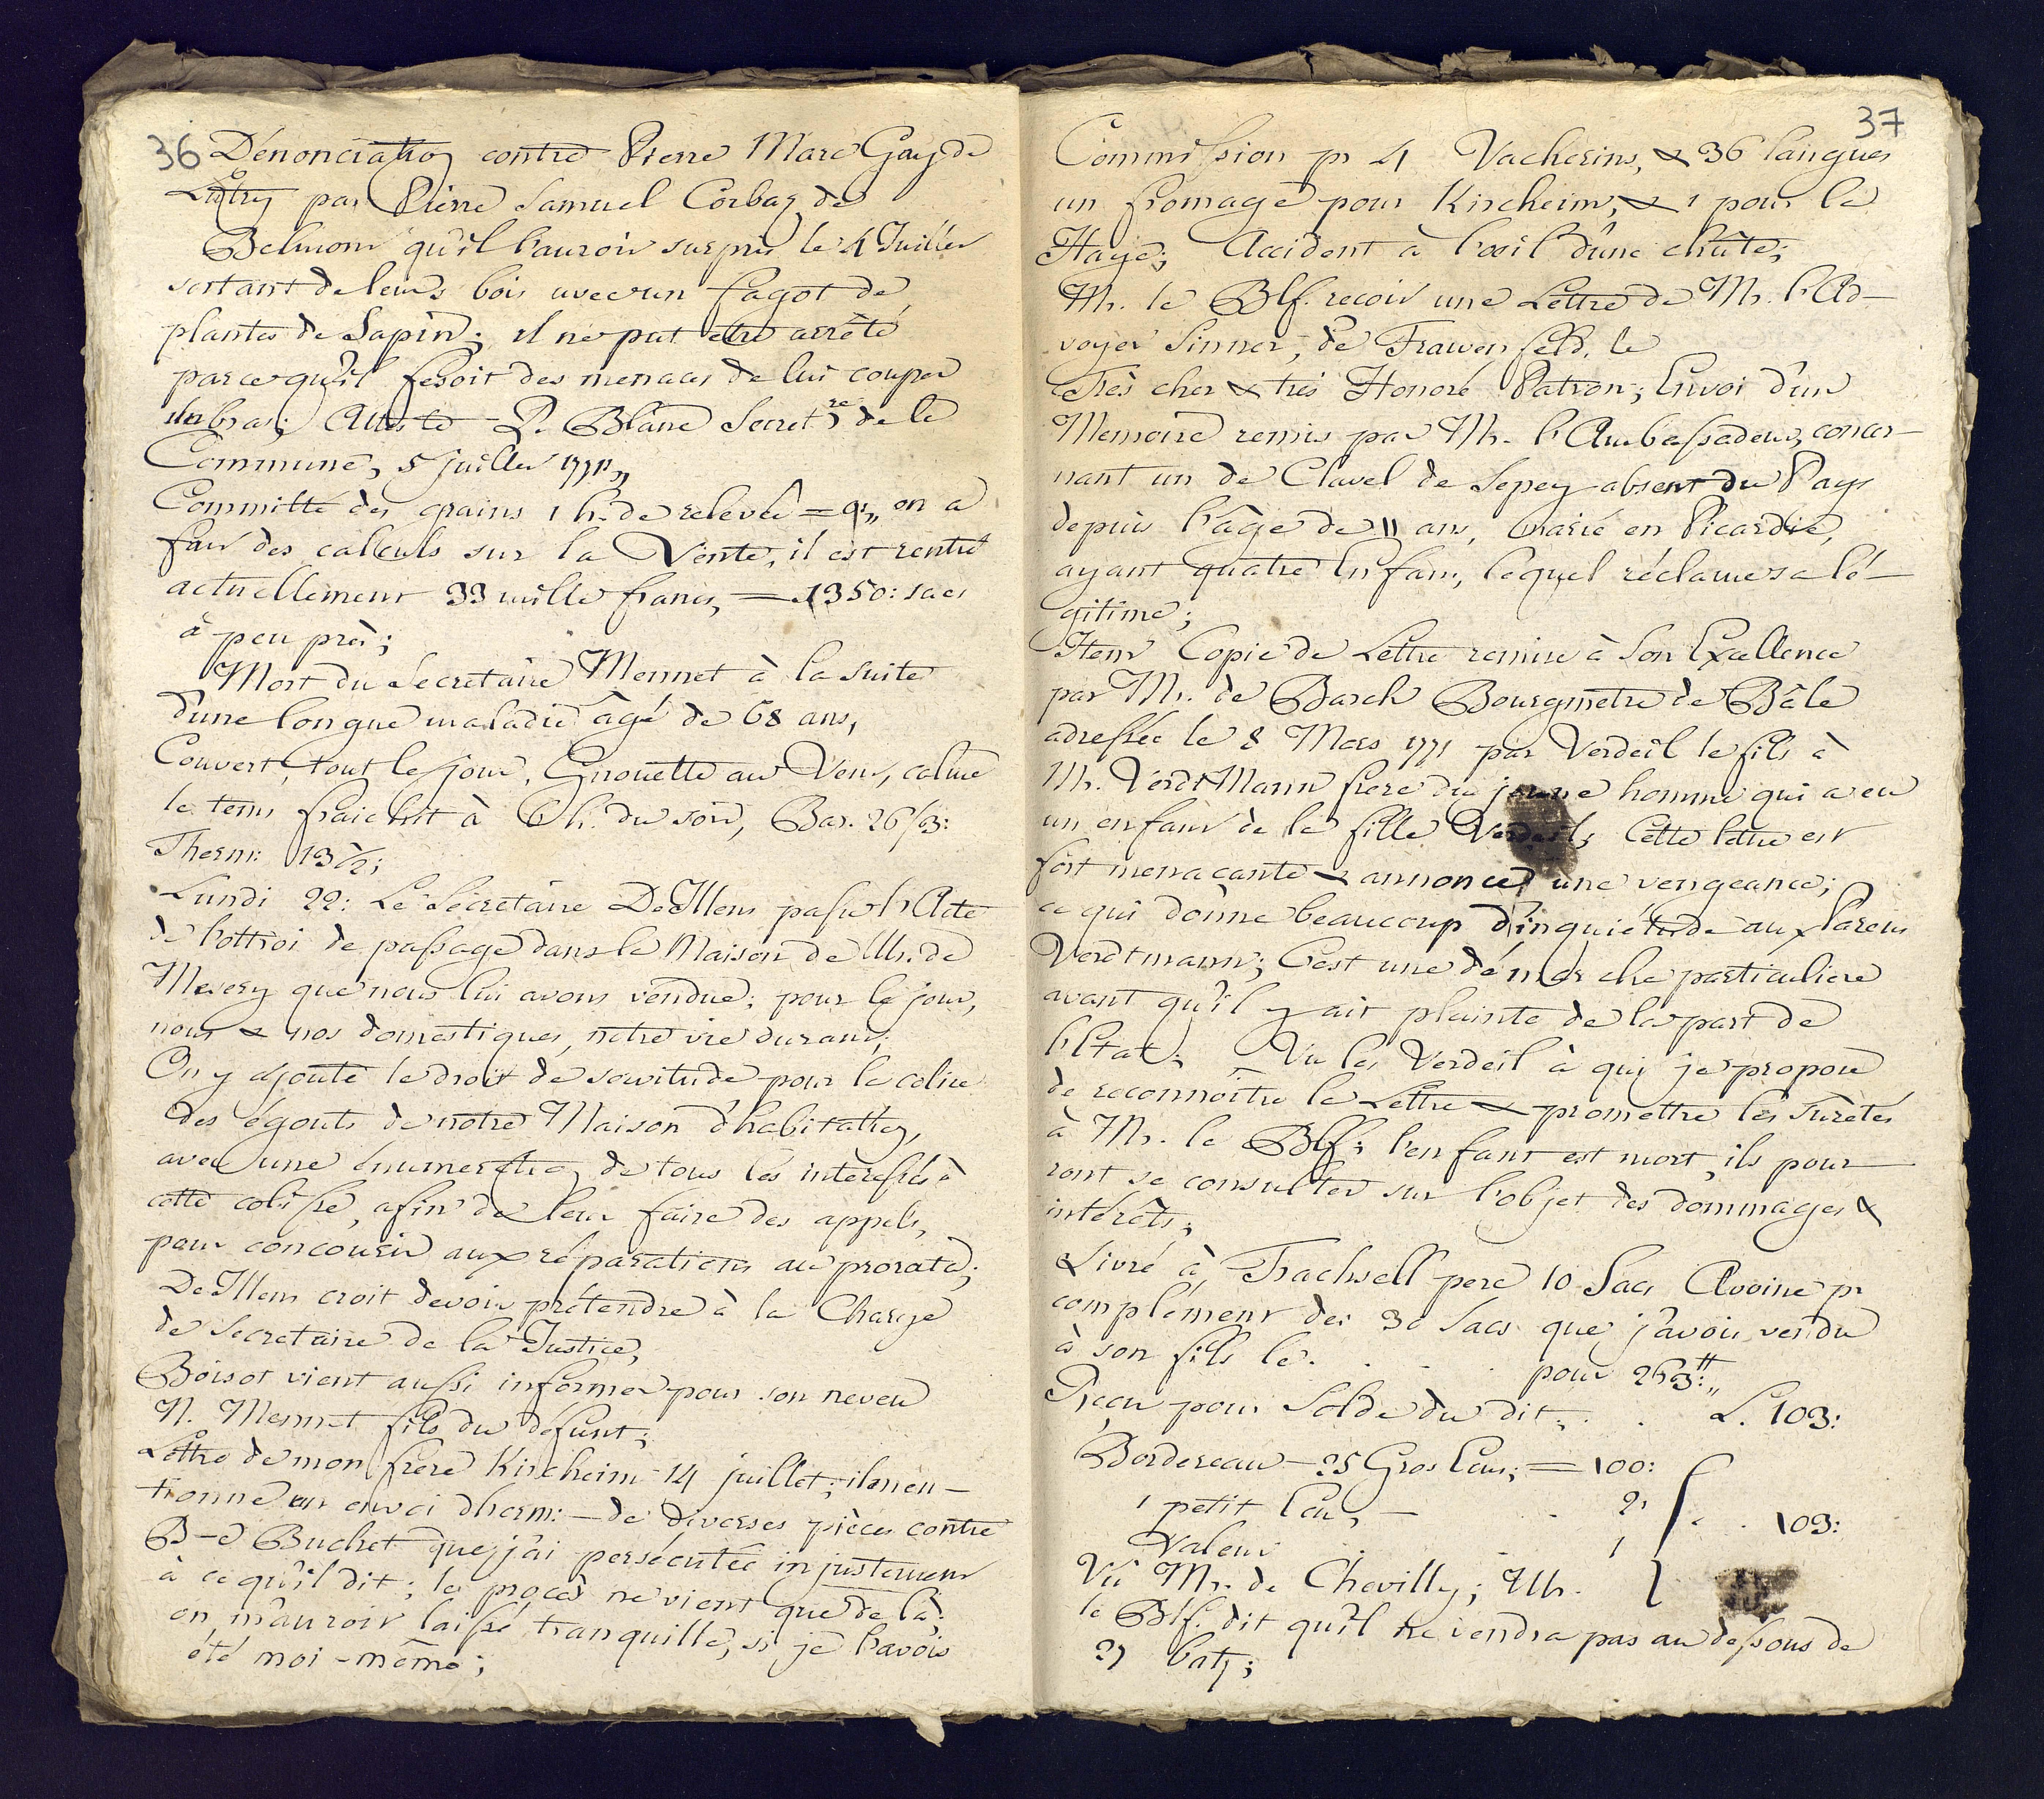 36 Dénonciation contre Pierre Marc Gay de
Lutry par Pierre Samuel Corbaz de
Belmont qu'il l'auroit surpris le 4 Juillet
sortant de leurs bois avec un fagot de
plantes de Sapin; il ne put etre arrêté
parce qu'il fesoit des menaces de lui couper
les bras; Atteste D. Blanc Secret.re de la
Commune, 5 juillet 1771,,
Committé des grains 1 h. de relevée = on a
fait des calculs sur la Vente, il est rentré
actuellement 33 mille francs, = 1350: sacs
à peu près;
Mort du Secretaire Mennet à la suite
d'une longue maladie âgé de 68 ans,
Couvert, tout le jour, Girouette au Vent, calme
le tems fraichit à 6 h. du soir, Bar. 26/3:
Therm: 13 1/2;
Lundi 22: Le Sécretaire DeIllens passe l'Acte
de l'ottroi de passage dans la Maison de Mr. de
Mesery que nous lui avons vendue; pour le jour,
nous & nos domestiques, notre vie durant;
On y ajoute le droit de servitude pour la colise
des égouts de notre Maison d'habitation,
avec une énumeration de tous les interessés à
cette colisse, afin de leur faire des appels,
pour concourir aux réparations au prorata;
DeIllens croit devoir prétendre à la Charge
de Secretaire de la Justice,
Boisot vient aussi informer pour son neveu
N. Mennet fils du défunt;
Lettre de mon frère Kircheim 14 juillet; il men-
tionne un envoi d'herm: - de diverses pièces contre
B-d Buchet que j'ai persécutée injustement
à ce qu'il dit; le procès ne vient que de là
on m'auroit laissé tranquille, si je l'avois
été moi-même;
37
Commission pr 4 Vacherins, & 36 langues
un fromage pour Kircheim, & 1 pour la
Haye; Accident à l'oeil d'une chûte;
Mr. le Blf. recoit une Lettre de Mr. l'Ad-
voyer Sinner, de Frawenfeld, le
Très cher & très Honoré Patron; Envoi d'un
Memoire remis par Mr. l'Ambassadeur, concer-
nant un de Clavel de Sepey absent du Pays
depuis l'âge de 11 ans, marié en Picardie,
ayant quatre Enfans, lequel réclame sa lé-
gitime;
Item Copie de Lettre remise à Son Excellence
par Mr. de Barch Bourgmetre de Bâle
adressée le 8 Mars 1771 par Verdeil le fils à
Mr. VerdtMann frere du jeune homme qui a eu
un enfant de la fille Verdeil; Cette lettre est
fort menacante & annonce une vengeance;
ce qui donne beaucoup d'inquiétude aux Parens
Verdtmann; C'est une démarche particuliere
avant qu'il y ait plainte de la part de
l'Etat; Vu les Verdeil à qui je propose
de reconnoitre la Lettre & promettre les Suretés
à Mr. le Blf; l'enfant est mort, ils pour-
ront se consulter sur l'objet des dommages &
intérêts;
Livré à Trachsell pere 10 Sacs Avoine pr
complément des 30 Sacs que j'avois vendu
à son fils le . . . . pour 263: ,,
Reçu pour Solde du dit, . . L. 103:
Bordereau - 25 Gros Ecus; = 100:
1 petit Ecu, - . 2
Valeur . 1 . . 103:
Vû Mr. de Chevilly; Mr.
le Blf. dit qu'il ne vendra pas au dessous de
27 batz;